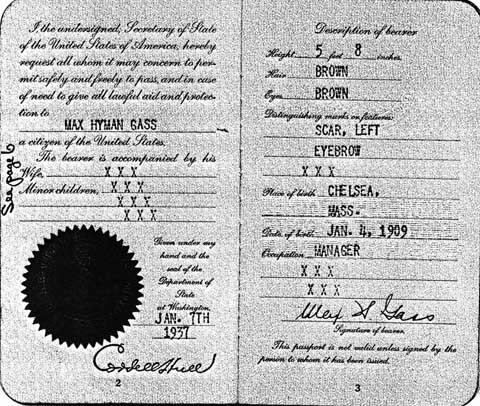 I, the undersigned, Secretary of State
of the United States of America, hereby
request all whom it may concern to per-
mit safely and freely to pass, and in case
of need to give all lawful aid and protec-
tion to
MAX HYMAN GASS
a citizen of the United States.
The bearer is accompanied by his
Wife, X X X
Minor children, X X X
X X X
X X X
See page 6
Given under my
hand and the
seal of the
Department of
State
at Washington,
JAN. 7TH
1937
Cordell Hull
2
Description of bearer
Height 5 feet 8 inches.
Hair BROWN
Eyes BROWN
Distinguishing marks or features:
SCAR, LEFT
EYEBROW
X X X
Place of birth CHELSEA,
MASS.
Date of birth JAN. 4, 1909
Occupation MANAGER
X X X
X X X
Max H Gass
Signature of bearer.
This passport is not valid unless signed by the
person to whom it has been issued.
3